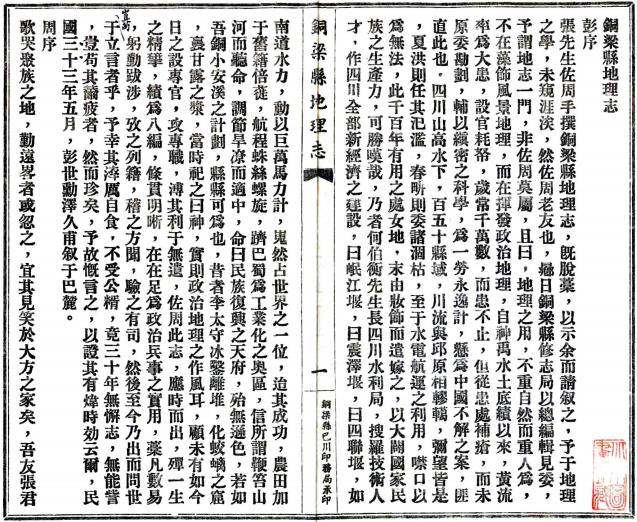 銅梁縣地理志
彭序
張先生佐周手撰銅梁縣地理志，既脫藁，以示余而請叙之，予于地理
之學，未窺涯涘，然佐周老友也，曩日銅梁縣修志局以總編輯見委，
予謂地志一門，非佐周莫屬，且曰，地理之用，不重自然而重人爲，
不在藻飾風景地理，而在揮發政治地理，自神禹水土底績以來，黃流
率爲大患，設官耗帑，歲常千萬數，而患不止，但從患處補瘡，而未
原委勘劃，輔以縝密之科學，爲一勞永逸計，懸爲中國不解之案，匪
直此也。四川山高水下，百五十縣域，川流與邱原相轇轕，彌望皆是
，夏洪則任其氾濫，春晰則委諸涸枯，至于水電航運之利用，噤口以
爲無法，此千百年有用之處女地，末由妝飾而遣嫁之，以大闢國家民
族之生產力，可勝嘆哉，乃者何伯衡先生長四川水利局，搜羅技術人
才，作四川全部新經濟之建設，曰岷江堰，曰震澤堰，曰四聯堰，如
銅梁縣地理志
一
銅梁縣巴川印務局承印
南道水力，動以巨萬馬力計，嵬然占世界之一位，迨其成功，農田加
于舊籍倍蓰，航程蛛絲螺旋，躋巴蜀爲工業化之奥區，信所謂鞭笞山
河而聽命，調節旱凉而適中，命曰民族復興之天府，殆無遜色，若如
吾銅小安溪之計劃，縣縣可爲也，昔者李太守冰鑿離堆，化蛟螭之窟
，裏甘露之漿，當時祀之曰神，實則政治地理之作風耳，顧未有如今
日之設專官，攻專職，溥其利于無遺，佐周此志，應時而出，殫一生
之精華，績爲八編，條貫明晰，在在足爲政治兵事之實用，藁凡數易
，躬動跋涉，攷之列籍，稽之方聞，驗之有司，然後至今乃出而問世
于立言者乎，予幸其滓厲自食，不受公糈，竟三十年無懈志，無能嘗
豈苟
，壹苟其譾疲者，然而珍矣，予故慨言之，以證其有煒時効云爾，民
國三十三年五月，彭世勳澤久甫叙于巴麓。
周序
歌哭聚族之地，勤遠畧者或忽之，宜其見笑於大方之家矣，吾友張君